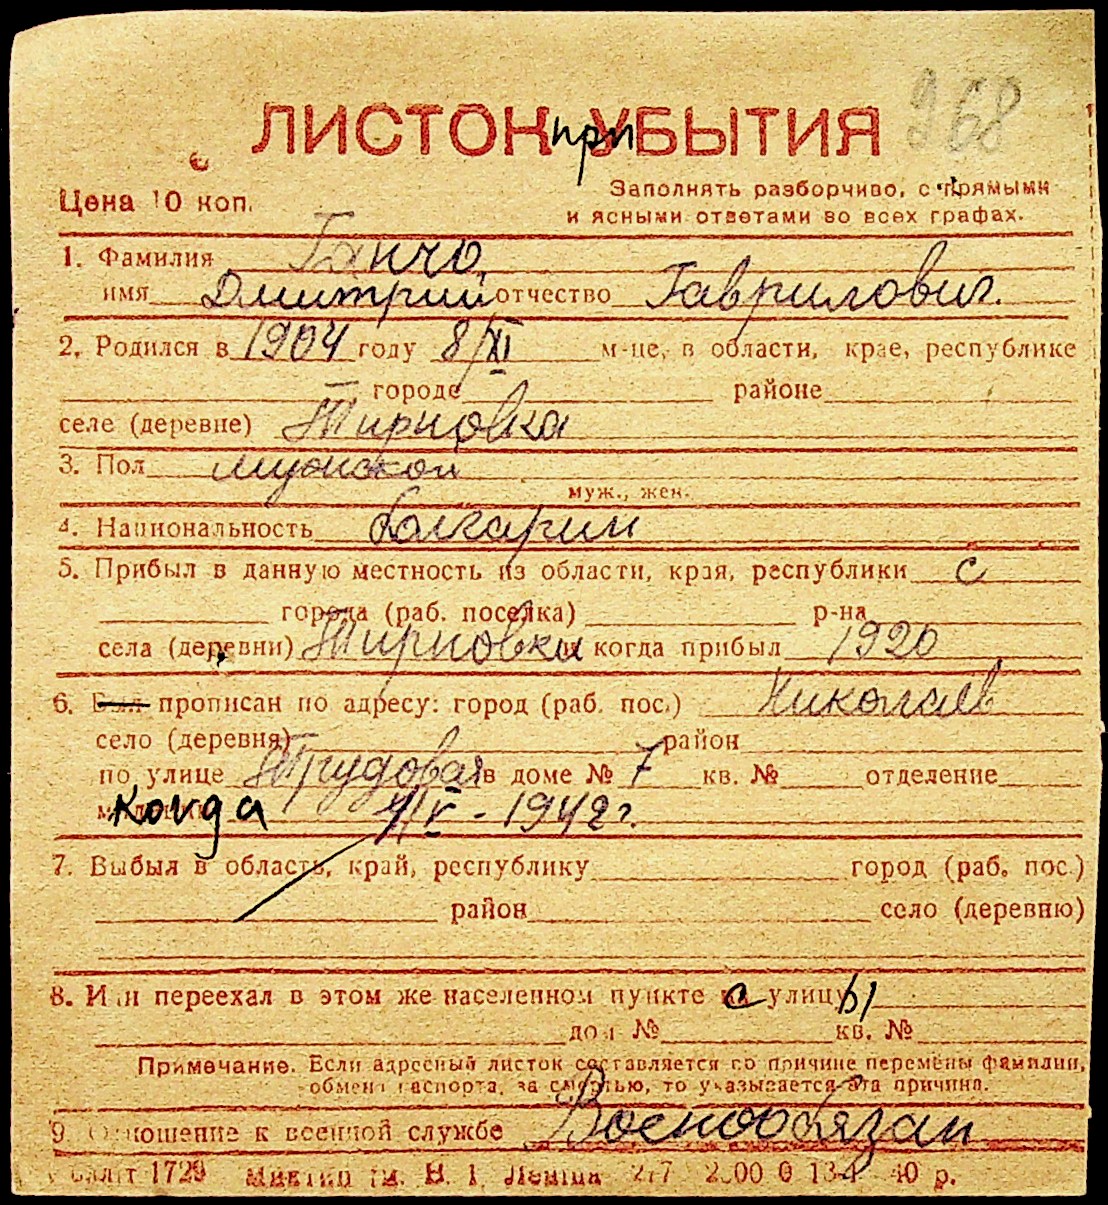 968
ЛИСТОК при УБЫТИЯ
Цена 10 коп.
Заполнять разборчиво, с прямыми
и ясными ответами во всех графах.
1. Фамилия Ганчо
имя Дмитрий отчество Гаврилович.
2. Родился в 1904 году 8/XI м-це, в области, крае, республике
городе районе
селе (деревне) Тирновка
3. Пол мужской
муж., жен.
4. Национальность болгарин
5. Прибыл в данную местность из области, края, республики с
города (раб. поселка) р-на
села (деревни) Тирновки и когда прибыл 1920
6. Был прописан по адресу: город (раб. пос.) Николаев
село (деревня) район
по улице Трудовая в доме № 7 кв. № отделение
Когда - 1942 г.
7. Выбыл в область, край, республику город (раб. пос.)
район село (деревню)
8. Или переехал в этом же населенном пункте с улицы
дом № кв. №
Примечание. Если адресный листок составляется по причине перемены фамилии,
обмена паспорта, за смертью, то указывается эта причина.
9. Отношение к военной службе Военнообязан
1729 им. В. І. Леніна 40 р.